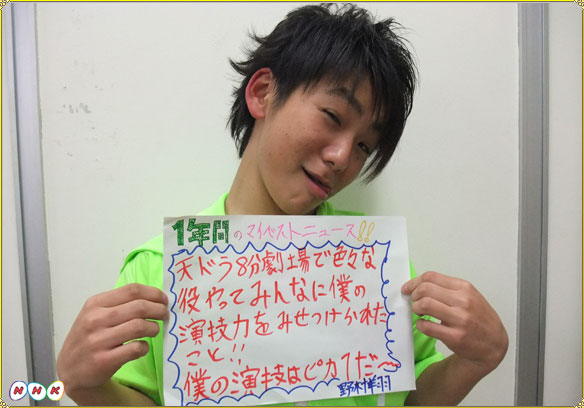 1年間のマイベストニュース!!
天ドラ8分劇場で色々な
役やってみんなに僕の
演技力をみせつけられた
こと!!
僕の演技はピカ1だ〜
NHK